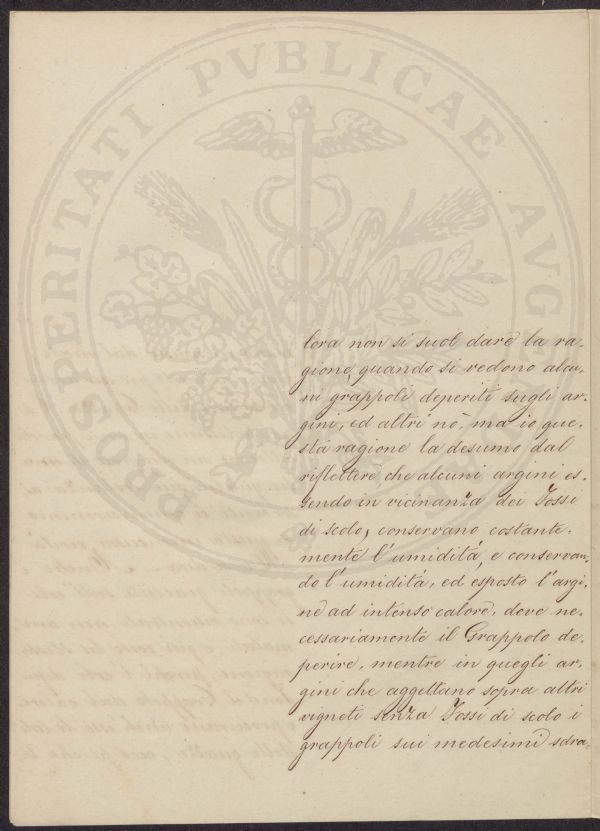 PROSPERITATI PVBLICAE AVGENDAE
lora non si suol dare la ra-
gione, quando si vedono alcu-
ni grappoli deperiti sugli ar-
gini, ed altri nò, ma io que-
sta ragione la desumo dal
riflettere che alcuni argini es-
sendo in vicinanza dei Fossi
di scolo, conservano costante-
mente l'umidità, e conservan-
do l'umidità, ed esposto l'argi-
ne ad intenso calore, deve ne-
cessariamente il Grappolo de-
perire, mentre in quegli ar-
gini che aggettano sopra altri
vigneti senza Fossi di scolo i
grappoli sui medesimi sdra-